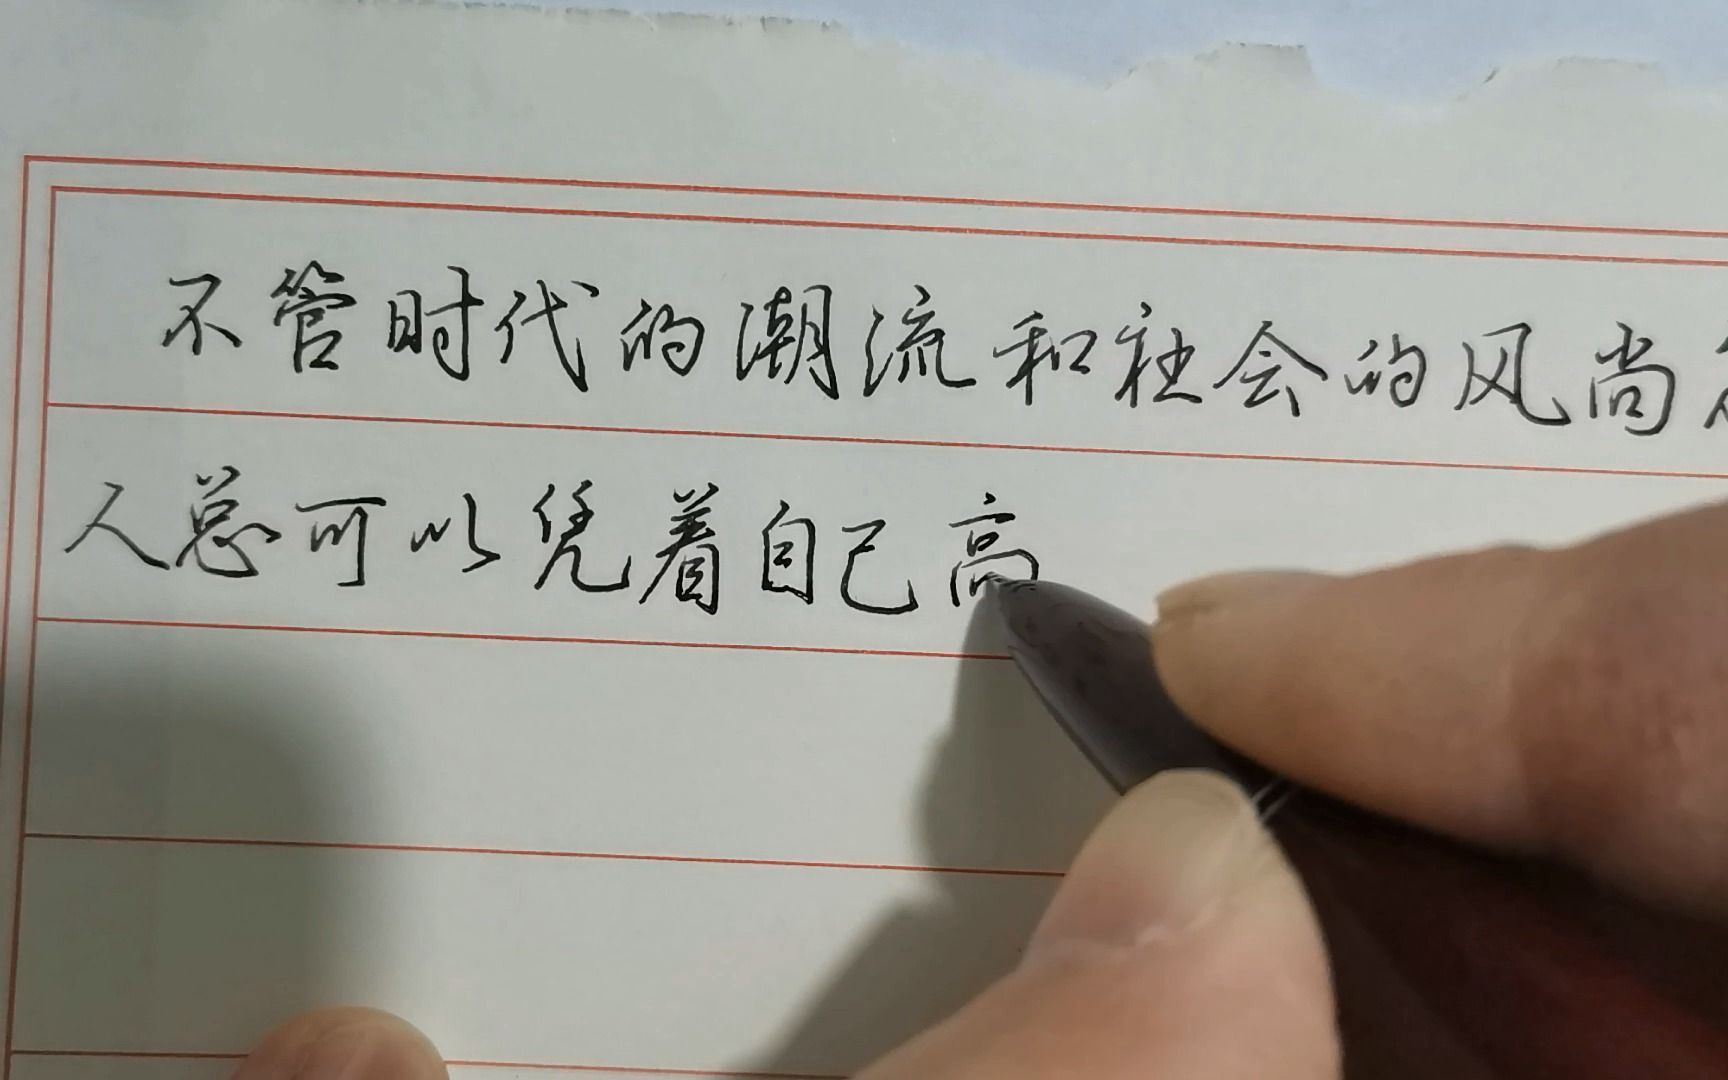 不管时代的潮流和社会的风尚
人总可以凭着自己高